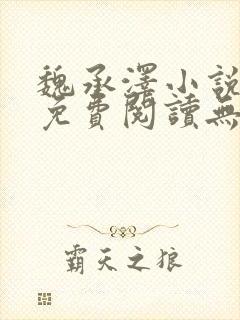 魏承澤小說
免費閱讀無
霸天之狼